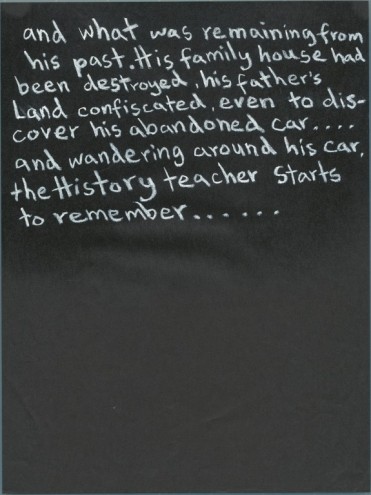 and what was remaining from
his past. His family house had
been destroyed, his father's
Land confiscated, even to dis-
cover his abandoned car....
and wandering around his car,
the History teacher Starts
to remember.......